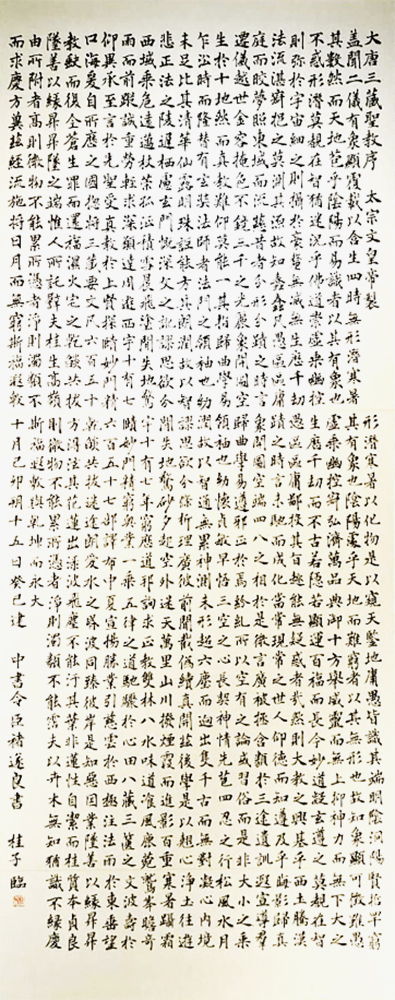 大唐三藏聖教序 太宗文皇帝製 形潛寒暑以化物是以窺天鑒地庸愚皆識其端明陰洞陽賢哲罕窮
蓋聞二儀有象顯覆載以含生四時無形潛寒暑著 其有象也陰陽處乎天地而難窮者以其無形也故知象顯可徵雖愚
其數然而天地苞乎陰陽而易識者以其有象也 虛乘幽控寂弘濟萬品典御十方舉威靈而無上抑神力而無下大之
不惑形潛莫覩在智猶迷況乎佛道崇虛乘幽控 生歷千劫而不古若隱若顯運百福而長今妙道凝玄遵之莫覩在智
則彌於宇宙細之則攝於豪釐無滅無生歷千劫 愚區區庸鄙投其旨趣能無疑惑者哉然則大教之興基乎西土騰漢
法流湛寂挹之莫測其源故知蠢蠢凡愚區區庸 蹟之時言未馳而成化當常現常之世人仰德而知遵及乎晦影歸真
庭而皎夢照東域而流慈昔者分形分蹟之時言 象開圖空端四八之相於是微言廣被拯含類於三途遺訓遐宣導羣
遷儀越世金容掩色不鏡三千之光麗象開圖空 歸曲學易遵邪正於焉紛糺所以空有之論或習俗而是非大小之乘
生於十地然而真教難仰莫能一其指歸曲學易 領袖也幼懷貞敏早悟三空之心長契神情先苞四忍之行松風水月
乍沿時而隆替有玄奘法師者法門之領袖也幼 潤故以智通無累神測未形超六塵而迥出隻千古而無對凝心內境
未足比其清華仙露明珠詎能方其朗潤故以智 謬思欲分條析理廣彼前聞截偽續真開茲後學是以翹心淨土往遊
悲正法之陵遲栖慮玄門慨深文之訛謬思欲分 間失地驚砂夕起空外迷天萬里山川撥煙霞而進影百重寒暑躡霜
西域乘危遠邁杖策孤征積雪晨飛塗間失地驚 宇十有七年窮歷道邪詢求正教雙林八水味道飡風鹿菀鷲峯瞻奇
雨而前蹤誠重勞輕求深願達周遊西宇十有七 賾妙門精窮奧業一乘五律之道馳驟於心田八藏三篋之文波濤於
仰異承至言於先聖受真教於上賢探賾妙門精 六百五十七部譯布中夏宣揚勝業引慈雲於西極注法雨於東垂聖
口海爰自所歷之國總將三藏要文凡六百五十 乾燄共拔迷途朗愛水之昏波同臻彼岸是知惡因業墜善以緣昇昇
教缺而復全蒼生罪而還福濕火宅之乾燄共拔 方得泫其花蓮出淥波飛塵不能汙其葉非蓮性自潔而桂質本貞良
墜善以緣昇昇墜之端惟人所託譬夫桂生高嶺 則微物不能累所憑者淨則濁類不能霑夫以卉木無知猶識不緣慶
由所附者高則微物不能累所憑者淨則濁類不 斯福遐敷與乾坤而永大
而求慶方冀茲經流施將日月而無窮斯福遐敷 十月己卯朔十五日癸巳建 中書令臣褚遂良書 桂子臨